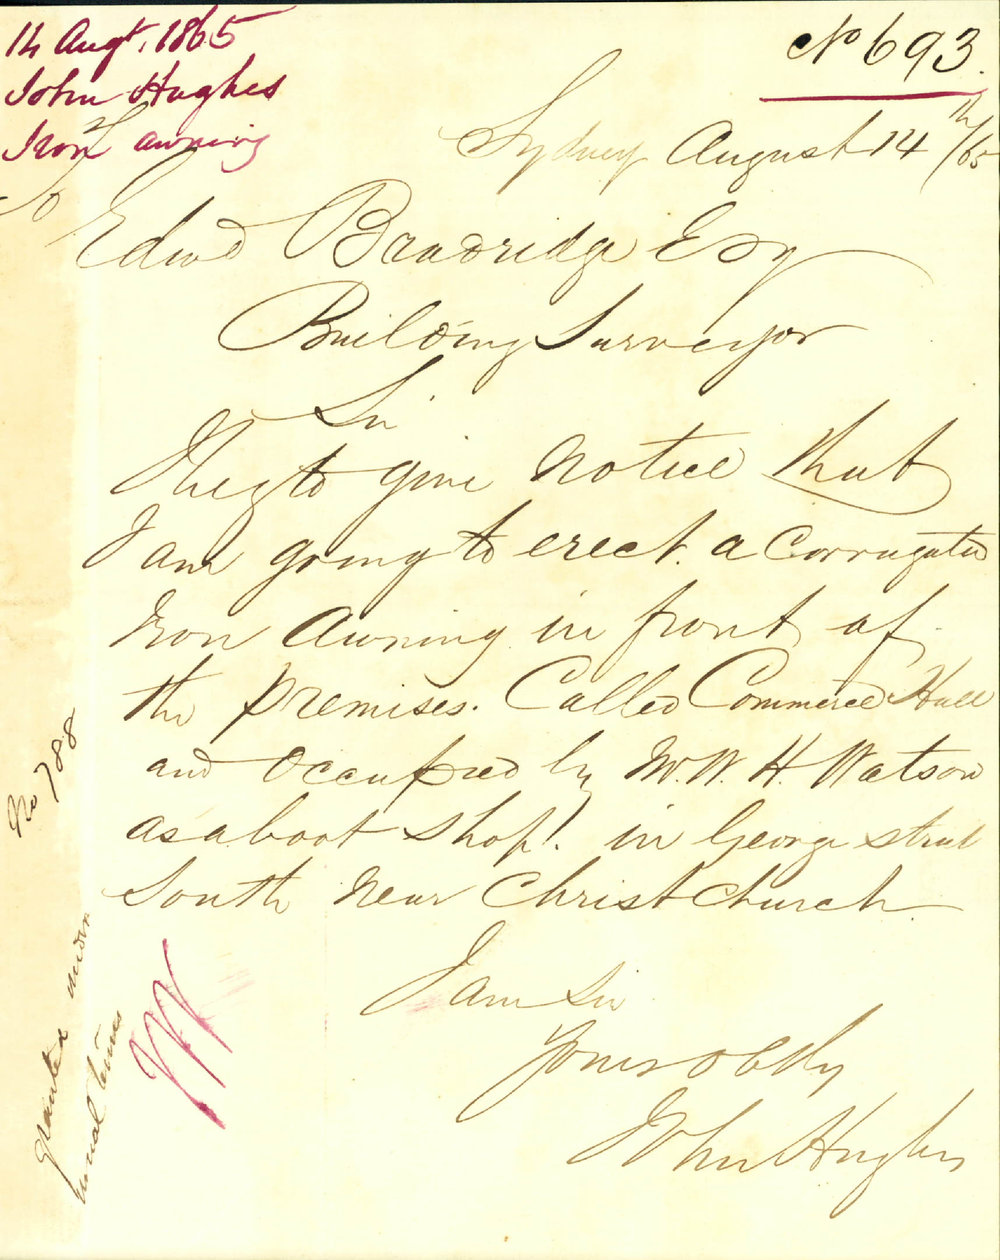 14 Augt. 1865
John Hughes
Iron awning
No 693.
Sydney August 14th/65
To
Edwd Bradridge Esq
Building Surveyor
Sir
I beg to give notice that
I am going to erect a Corrugated
Iron Awning in front of
the premises. Called Commerce Hall
and Occupied by Mr. W. H. Watson
as a boot shop! in George street
South near Christ Church
I am Sir
Yours obtly
John Hughes
No 788
granted under
usual terms